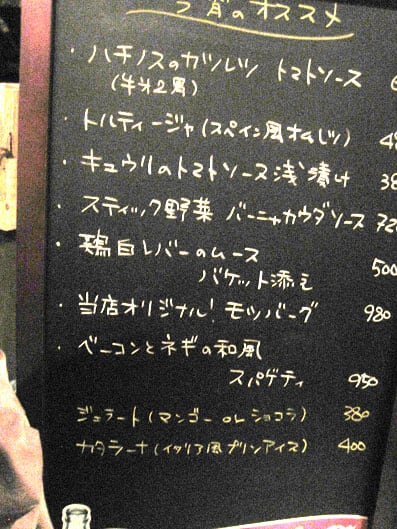 のオススメ
・ハチノスのカツレツ トマトソース
(牛オ2胃)
・トルティージャ(スペイン風オムレツ)
・キュウリのトマトソース浅漬け
・スティック野菜 バーニャカウダソース
・鶏白レバーのムース
バケット添え 500
・当店オリジナル! モツバーグ 980
・ベーコンとネギの和風
スパゲティ 950
ジェラート(マンゴー or ショコラ) 380
カタラーナ(イタリア風プリンアイス) 400